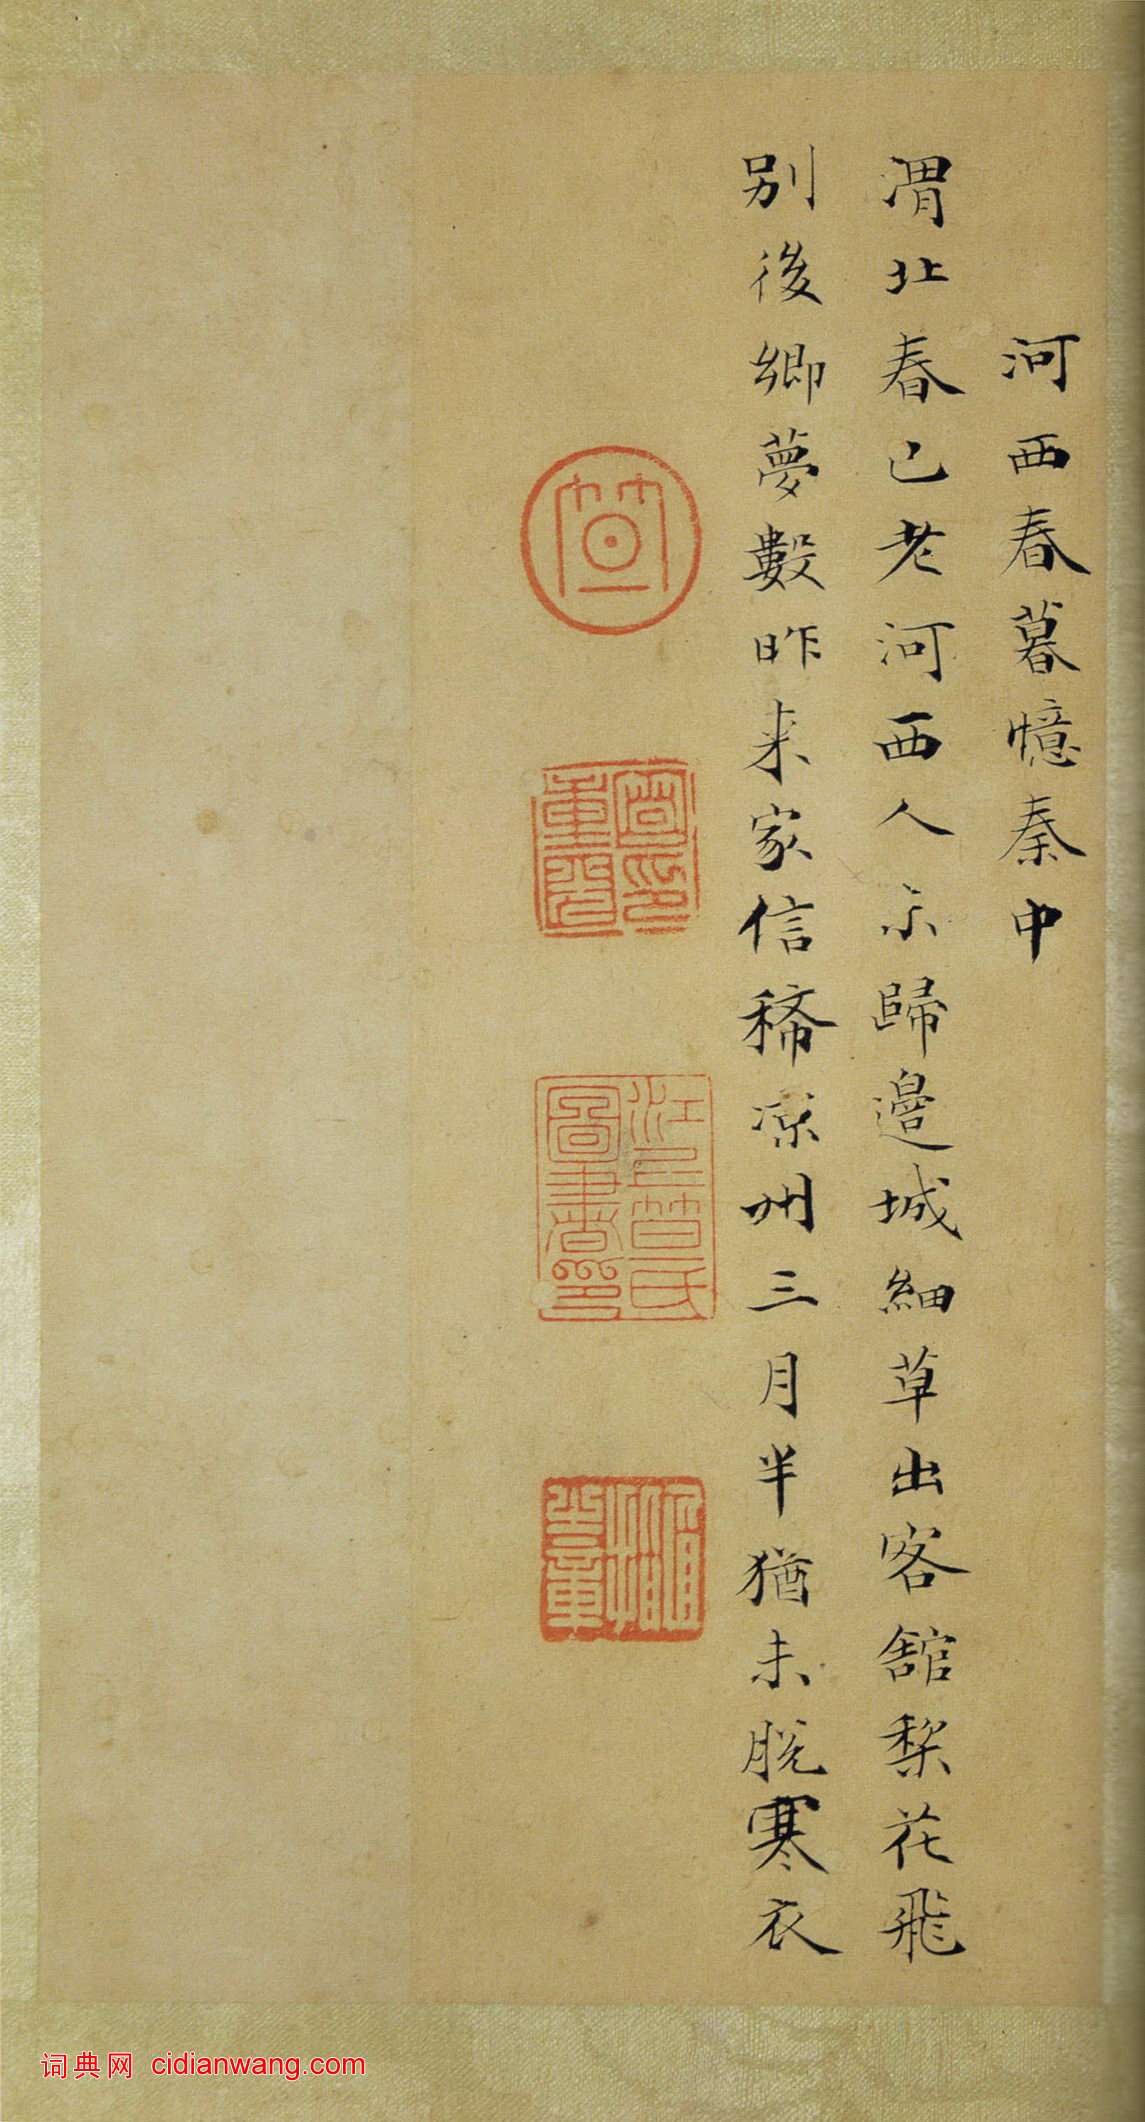 河西春暮憶秦中
渭北春已老河西人未歸邊城細草出客舘梨花飛
別後鄉夢數昨来家信稀凉州三月半猶未脫寒衣
笪
江上笪氏
词典网 cidianwang.com